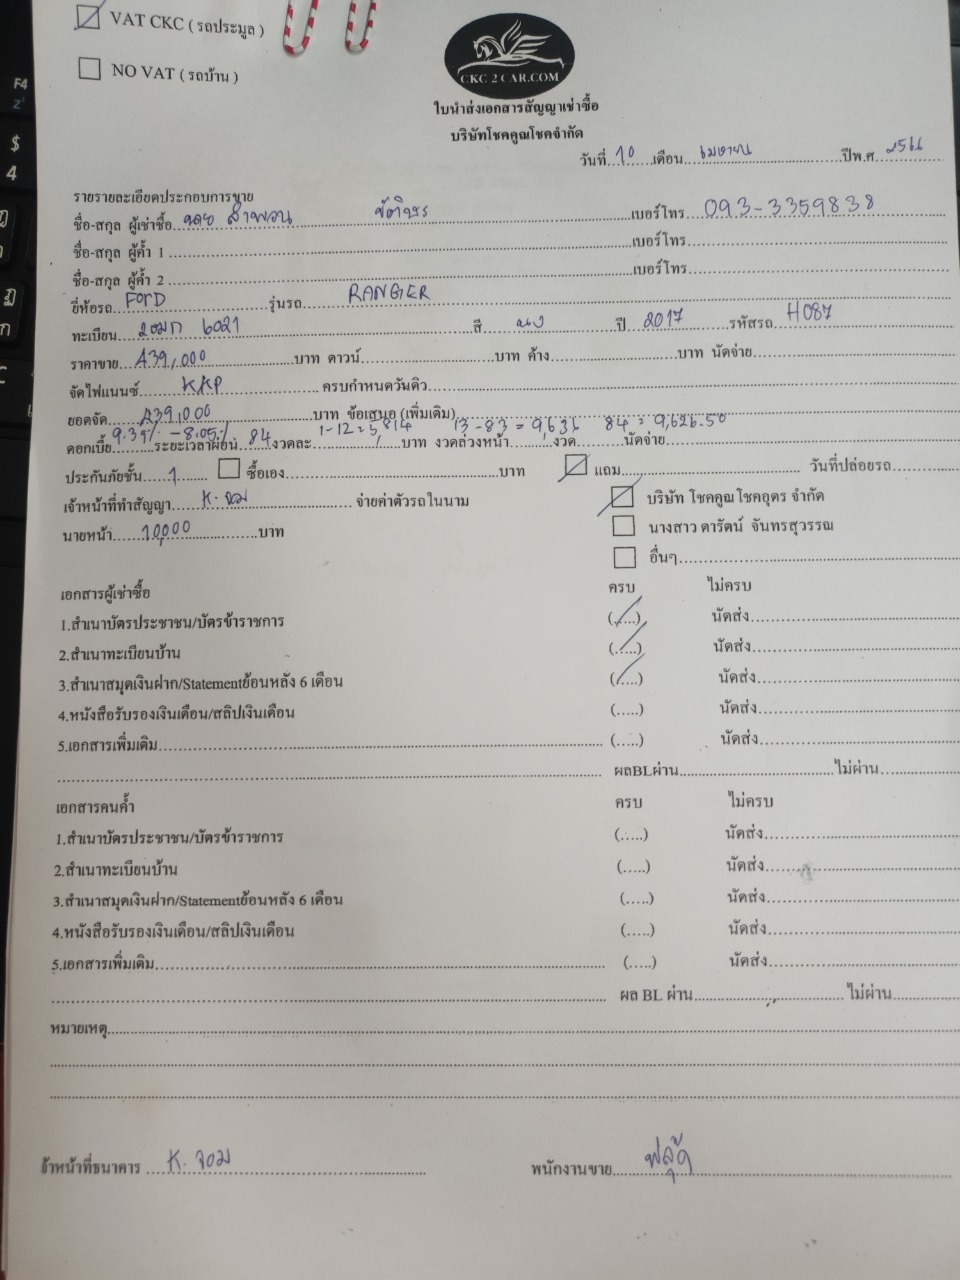 VAT CKC ( รถประมูล )
NO VAT ( รถบ้าน )
CKC 2 CAR.COM
ใบนำส่งเอกสารสัญญาเช่าซื้อ
บริษัทโชคคูณโชคจำกัด
วันที่ 10 เดือน เมษายน ปีพ.ศ.
รายรายละเอียดประกอบการขาย
ชื่อ-สกุล ผู้เช่าซื้อ นาย เบอร์โทร 093-3359838
ชื่อ-สกุล ผู้ค้ำ 1 เบอร์โทร
ชื่อ-สกุล ผู้ค้ำ 2 เบอร์โทร
ยี่ห้อรถ FORD รุ่นรถ RANGER
ทะเบียน 2ฒก 6021 สี ปี 2017 รหัสรถ H087
ราคาขาย 439,000 บาท ดาวน์ บาท ค้าง บาท นัดจ่าย
จัดไฟแนนซ์ KKP ครบกำหนดวันดิว
ยอดจัด 439,000 บาท ข้อเสนอ (เพิ่มเติม)
9.39% - 8.05% 1-12 = 5,814 13-83 = 9,631 84 = 9,626.50
ดอกเบี้ย ระยะเวลาผ่อน 84 งวดละ บาท งวดล่วงหน้า งวด นัดจ่าย
ประกันภัยชั้น 1 ซื้อเอง บาท แถม วันที่ปล่อยรถ
เจ้าหน้าที่ทำสัญญา K. จอม จ่ายค่าตัวรถในนาม บริษัท โชคคูณโชคอุดร จำกัด
นางสาว ดารัตน์ จันทรสุวรรณ
นายหน้า 10,000 บาท
อื่นๆ
เอกสารผู้เช่าซื้อ ครบ ไม่ครบ
1.สำเนาบัตรประชาชน/บัตรข้าราชการ (.....) นัดส่ง
2.สำเนาทะเบียนบ้าน (.....) นัดส่ง
3.สำเนาสมุดเงินฝาก/Statementย้อนหลัง 6 เดือน (.....) นัดส่ง
4.หนังสือรับรองเงินเดือน/สลิปเงินเดือน (.....) นัดส่ง
5.เอกสารเพิ่มเติม (.....) นัดส่ง
ผลBLผ่าน ไม่ผ่าน
เอกสารคนค้ำ ครบ ไม่ครบ
1.สำเนาบัตรประชาชน/บัตรข้าราชการ (.....) นัดส่ง
2.สำเนาทะเบียนบ้าน (.....) นัดส่ง
3.สำเนาสมุดเงินฝาก/Statementย้อนหลัง 6 เดือน (.....) นัดส่ง
4.หนังสือรับรองเงินเดือน/สลิปเงินเดือน (.....) นัดส่ง
5.เอกสารเพิ่มเติม (.....) นัดส่ง
ผล BL ผ่าน ไม่ผ่าน
หมายเหตุ
จ้าหน้าที่ธนาคาร K. จอม พนักงานขาย ฟลุ๊ค
F4
$
4